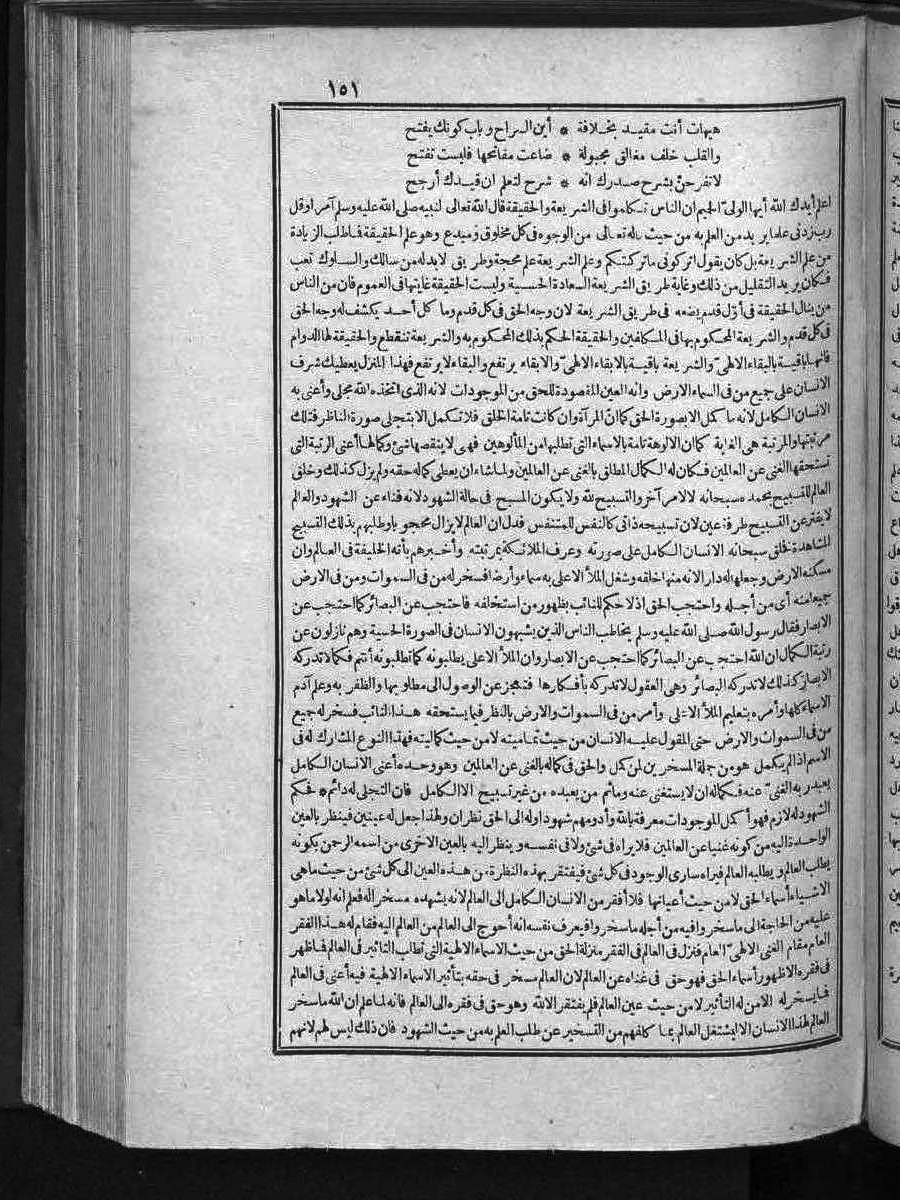 ١٥١
هيهات أنت مقيد بخلافة * أين السراح وباب كونك يفتح
والقلب خلف مغالق مجبولة * ضاعت مفاتحها فليست تفتح
لا تفرحن بشرح صدرك انه * شرح لتعلم ان قيدك أرجح
اعلم أيدك الله أيها الولىّ الحميم ان الناس تكاموا فى الشريعة والحقيقة قال الله تعالى لنبيه صلى الله عليه وسلم آمرا وقل
رب زدنى علما يريد من العلم به من حيث ماله تعالى من الوجوه فى كل مخلوق ومبدع وهو علم الحقيقة فما طلب الزيادة
من علم الشريعة بل كان يقول اتركونى ماتركتكم وعلم الشريعة علم محجة وطريق لابد له من سالك والسلوك تعب
فكان يريد التقليل من ذلك وغاية طريق الشريعة السعادة الحسية وليست الحقيقة غايتها فى العموم فان من الناس
من ينال الحقيقة فى أوّل قدم يضعه فى طريق الشريعة لان وجه الحق فى كل قدم وما كل أحد يكشف له وجه الحق
فى كل قدم والشريعة المحكوم بها فى المكلفين والحقيقة الحكم بذلك المحكوم به والشريعة تنقطع والحقيقة لها الدوام
فانها باقية بالبقاء الالهىّ والشريعة باقية بالابقاء الالهىّ والابقاء يرتفع والبقاء لا يرتفع فهذا المنزل يعطيك شرف
الانسان على جميع من فى السماء والارض وانه العين المقصودة للحق من الموجودات لانه الذى اتخذه الله مجلى وأعنى به
الانسان الكامل لانه ما كمل الابصورة الحق كما انّ المرآة وان كانت تامة الخلق فلا تكمل الابتجلى صورة الناظر فتلك
مرتبتها والمرتبة هى الغاية كما ان الالوهة تامة بالاسماء التى تطلبها من المألوهين فهى لا ينقصها شئ وكمالها أعنى الرتبة التى
تستحقها الغنى عن العالمين فكان له الكمال المطلق بالغنى عن العالمين ولما شاء ان يعطى كماله حقه ولم يزل كذلك وخلق
العالم للتسبيح بحمده سبحانه لا لامر آخر والتسبيح لله ولا يكون المسبح فى حالة الشهود لانه فناء عن الشهود والعالم
لا يفتر عن التسبيح طرفة عين لان تسبيحه ذاتى كالنفس للمتنفس فدل ان العالم لا يزال محجوبا وطلبهم بذلك التسبيح
المشاهدة خلق سبحانه الانسان الكامل على صورته وعرف الملائكة بمرتبته وأخبرهم بأنه الخليفة فى العالم وان
مسكنه الارض وجعلها له دار الانه منها خلقه وشغل الملأ الاعلى به سماء وأرضا فسخر له من فى السموات ومن فى الارض
جميعا منه أى من أجله واحتجب الحق اذ لا حكم للنائب بظهور من استخلفه فاحتجب عن البصائر كما احتجب عن
الابصار فقال رسول الله صلى الله عليه وسلم يخاطب الناس الذين يشبهون الانسان فى الصورة الحسية وهم نازلون عن
رتبة الكمال ان الله احتجب عن البصائر كما احتجب عن الابصار وان الملأ الاعلى يطلبونه كما تطلبونه أنتم فكما لا تدركه
الابصار كذلك لا تدركه البصائر وهى العقول لا تدركه بأفكارها فتعجز عن الوصول الى مطلوبها والظفر به وعلم آدم
الاسماء كلها وأمره بتعليم الملأ الاعلى وأمر من فى السموات والارض بالنظر فيما يستحقه هذا النائب فسخر له جميع
من فى السموات والارض حتى المقول عليه الانسان من حيث تماميته لا من حيث كماليته فهذا النوع المشارك له فى
الاسم اذا لم يكمل هو من جملة المسخرين لمن كمل والحق فى كماله بالغنى عن العالمين وهو وحده أعنى الانسان الكامل
يعبد ربه الغنىّ عنه فكماله ان لا يستغنى عنه وماثم من يعبده من غير تسبيح الا الكامل فان التجلى له دائم * فحكم
الشهود له لازم فهو أكمل الموجودات معرفة بالله وأدومهم شهودا وله الى الحق نظران ولهذا جعل له عينين فينظر بالعين
الواحدة اليه من كونه غنيا عن العالمين فلا يراه فى شئ ولا فى نفسه وينظر اليه بالعين الاخرى من اسمه الرحمن بكونه
يطلب العالم ويطلبه العالم فيراه سارى الوجود فى كل شئ فيفتقر بهذه النظرة من هذه العين الى كل شئ من حيث ماهى
الاشياء أسماء الحق لا من حيث أعيانها فلا أفقر من الانسان الكامل الى العالم لانه يشهده مسخر اله فعلم انه لولا ما هو
عليه من الحاجة الى ما سخر وافيه من أجله ما سخر وافيعرف نفسه انه أحوج الى العالم من العالم اليه فقام له هذا الفقر
العام مقام الغنى الالهىّ العام فنزل فى العالم فى الفقر منزلة الحق من حيث الاسماء الالهية التى تطلب التأثير فى العالم فما ظهر
فى فقره الاظهور أسماء الحق فهو حق فى غناه عن العالم لان العالم مسخر فى حقه بتأثير الاسماء الالهية فيه أعنى فى العالم
فما يسخر له الا من له التأثير لا من حيث عين العالم فلم يفتقر الالله وهو حق فى فقره الى العالم فانه لما علم ان الله ما سخر
العالم لهذا الانسان الا ليشتغل العالم بما كلفهم من التسخير عن طلب العلم به من حيث الشهود فان ذلك ليس لهم لانهم